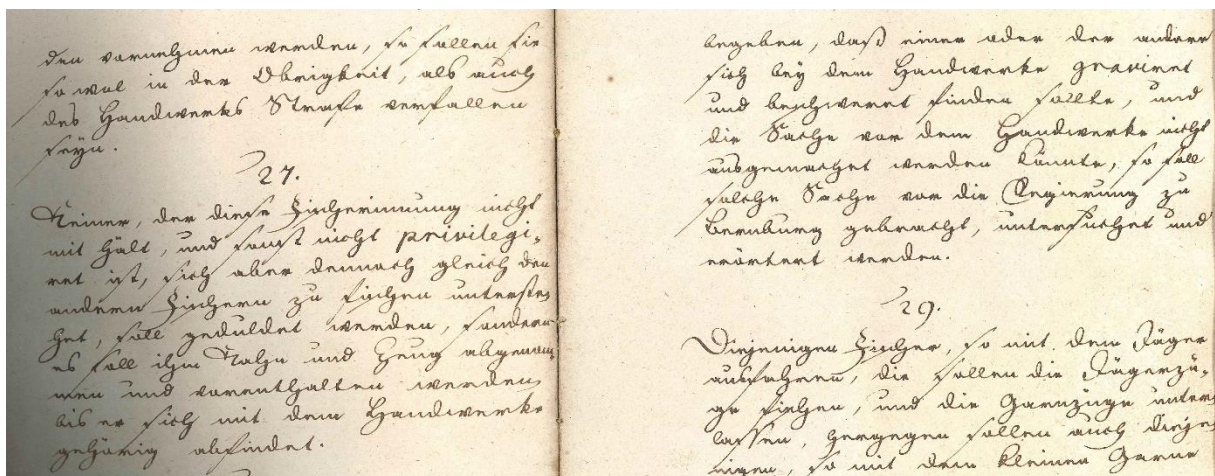 den vornehmen werden, so sollen sie
so wol in der Obrigkeit, als auch
des Handwerks Strafe verfallen
seyn.
27.
Keiner, der diese Fischerinnung nicht
mit hält, und sonst nicht privilegi-
ret ist, sich aber dennoch gleich den
andern Fischern zu fischen unterste-
het, soll geduldet werden, sondern
es soll ihm Kahn und Zeug abgenom-
men und vorenthalten werden,
bis er sich mit dem Handwerke
gehörig abfindet.
begeben, daß einer oder der andere
sich bey dem Handwerke graviret
und beschweret finden sollte, und
die Sache vor dem Handwerke nicht
ausgemachet werden könnte, so soll
solche Sache vor die Regierung zu
Bernburg gebracht, untersuchet und
erörtert werden.
29.
Diejenigen Fischer, so mit dem Jäger
ausfahren, die sollen die Jägerzü-
ge fischen, und die Garnzüge unter-
lassen, hergegen sollen auch dieje-
nigen, so mit dem kleinen Garne